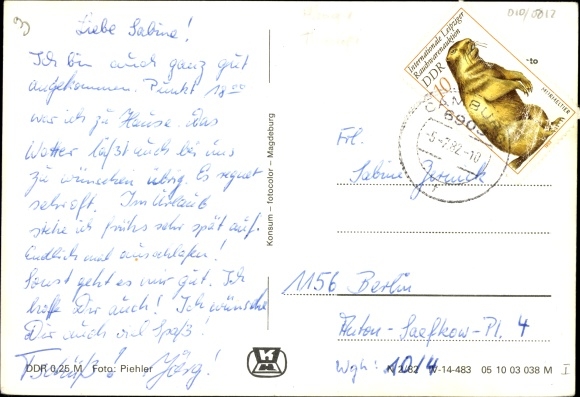 Liebe Sabine!
Ich bin auch ganz gut
angekommen. Punkt 18.00
war ich zu Hause. Das
Wetter läßt auch bei uns
zu wünschen übrig. Es regnet
sehr oft. Im Urlaub
stehe ich früh sehr spät auf.
Endlich mal ausschlafen!
Sonst geht es mir gut. Ich
hoffe Dir auch! Ich wünsche
Dir auch viel Spaß!
Tschüß! Jörg!
DDR 0,25 M Foto: Piehler
Konsum – fotocolor – Magdeburg
010/0012
Internationale Leipziger
Rauchwarenauktion
DDR
10
MURMELTIER
-to
-5.-7.82-10
Frl.
Sabine
1156 Berlin
Anton-Saefkow-Pl. 4
Wgh: 10/4
K 2/82 V-14-483 05 10 03 038 M
I